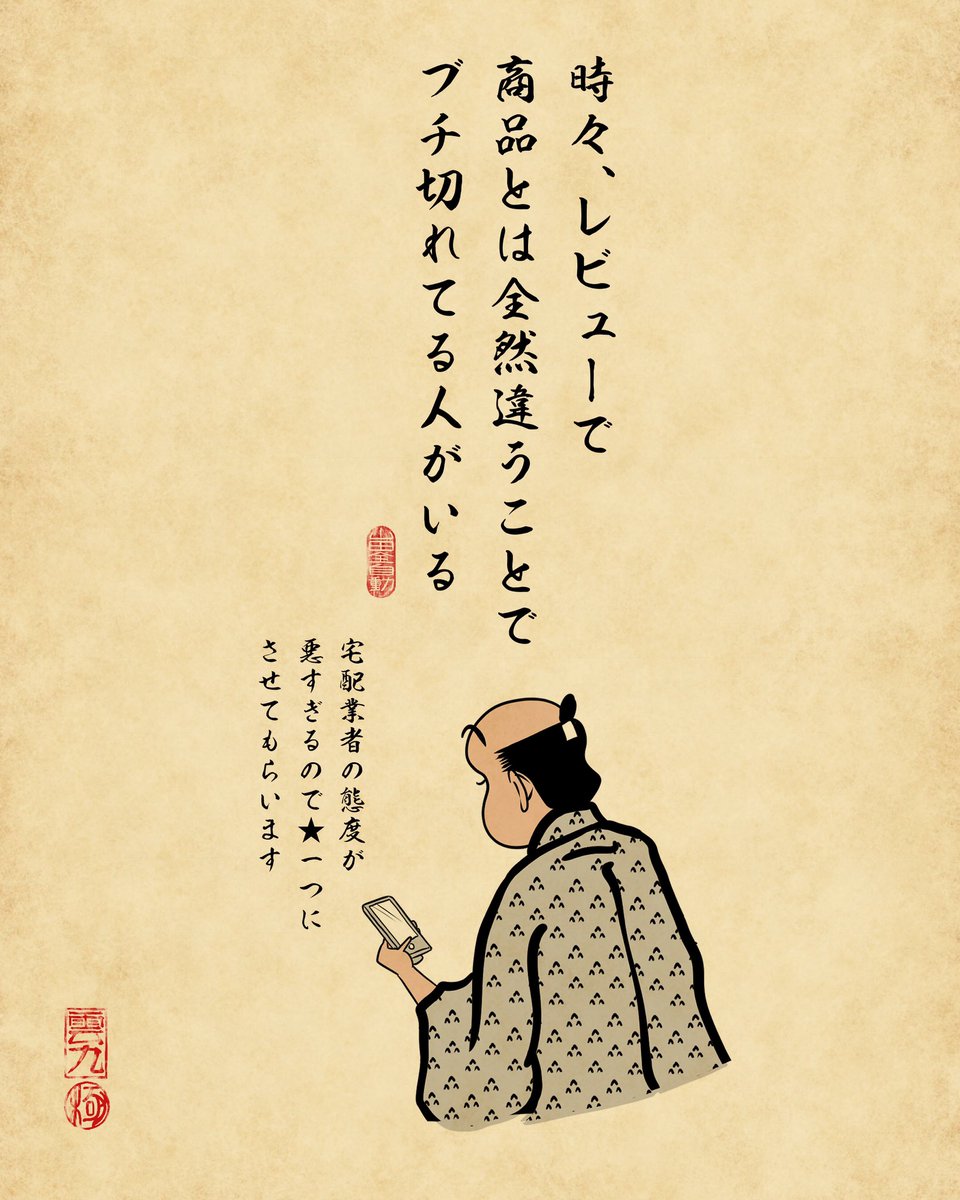 時々、レビューで
商品とは全然違うことで
ブチ切れてる人がいる
宅配業者の態度が
悪すぎるので★一つに
させてもらいます